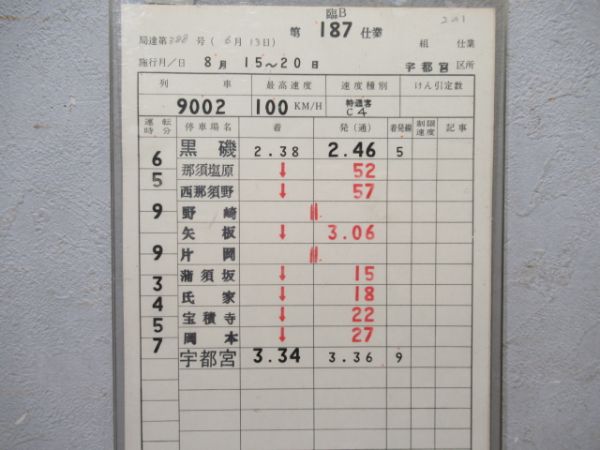 臨B
第 187 仕業
201
局達第388号 (6月13日)
組 仕業
施行月/日 8月 15~20日
宇都宮 区所
列車 最高速度 速度種別 けん引定数
9002 100 KM/H 特通客 C4
運転時分 停車場名 着 発(通) 着発線 制限速度 記事
黒磯 2.38 2.46 5
6
那須塩原 ↓ 52
5
西那須野 ↓ 57
野崎 ||
9
矢板 ↓ 3.06
片岡 ||
9
蒲須坂 ↓ 15
3
氏家 ↓ 18
4
宝積寺 ↓ 22
5
岡本 ↓ 27
7
宇都宮 3.34 3.36 9